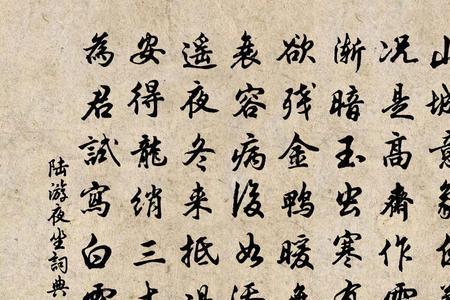 山城意象
况是高齋作雪
渐暗玉虫寒有
欲残金鴨暖
衰容病後如添
遥夜冬来抵過
安得龍綃三
為君試寫白雲
陆游夜坐詞典